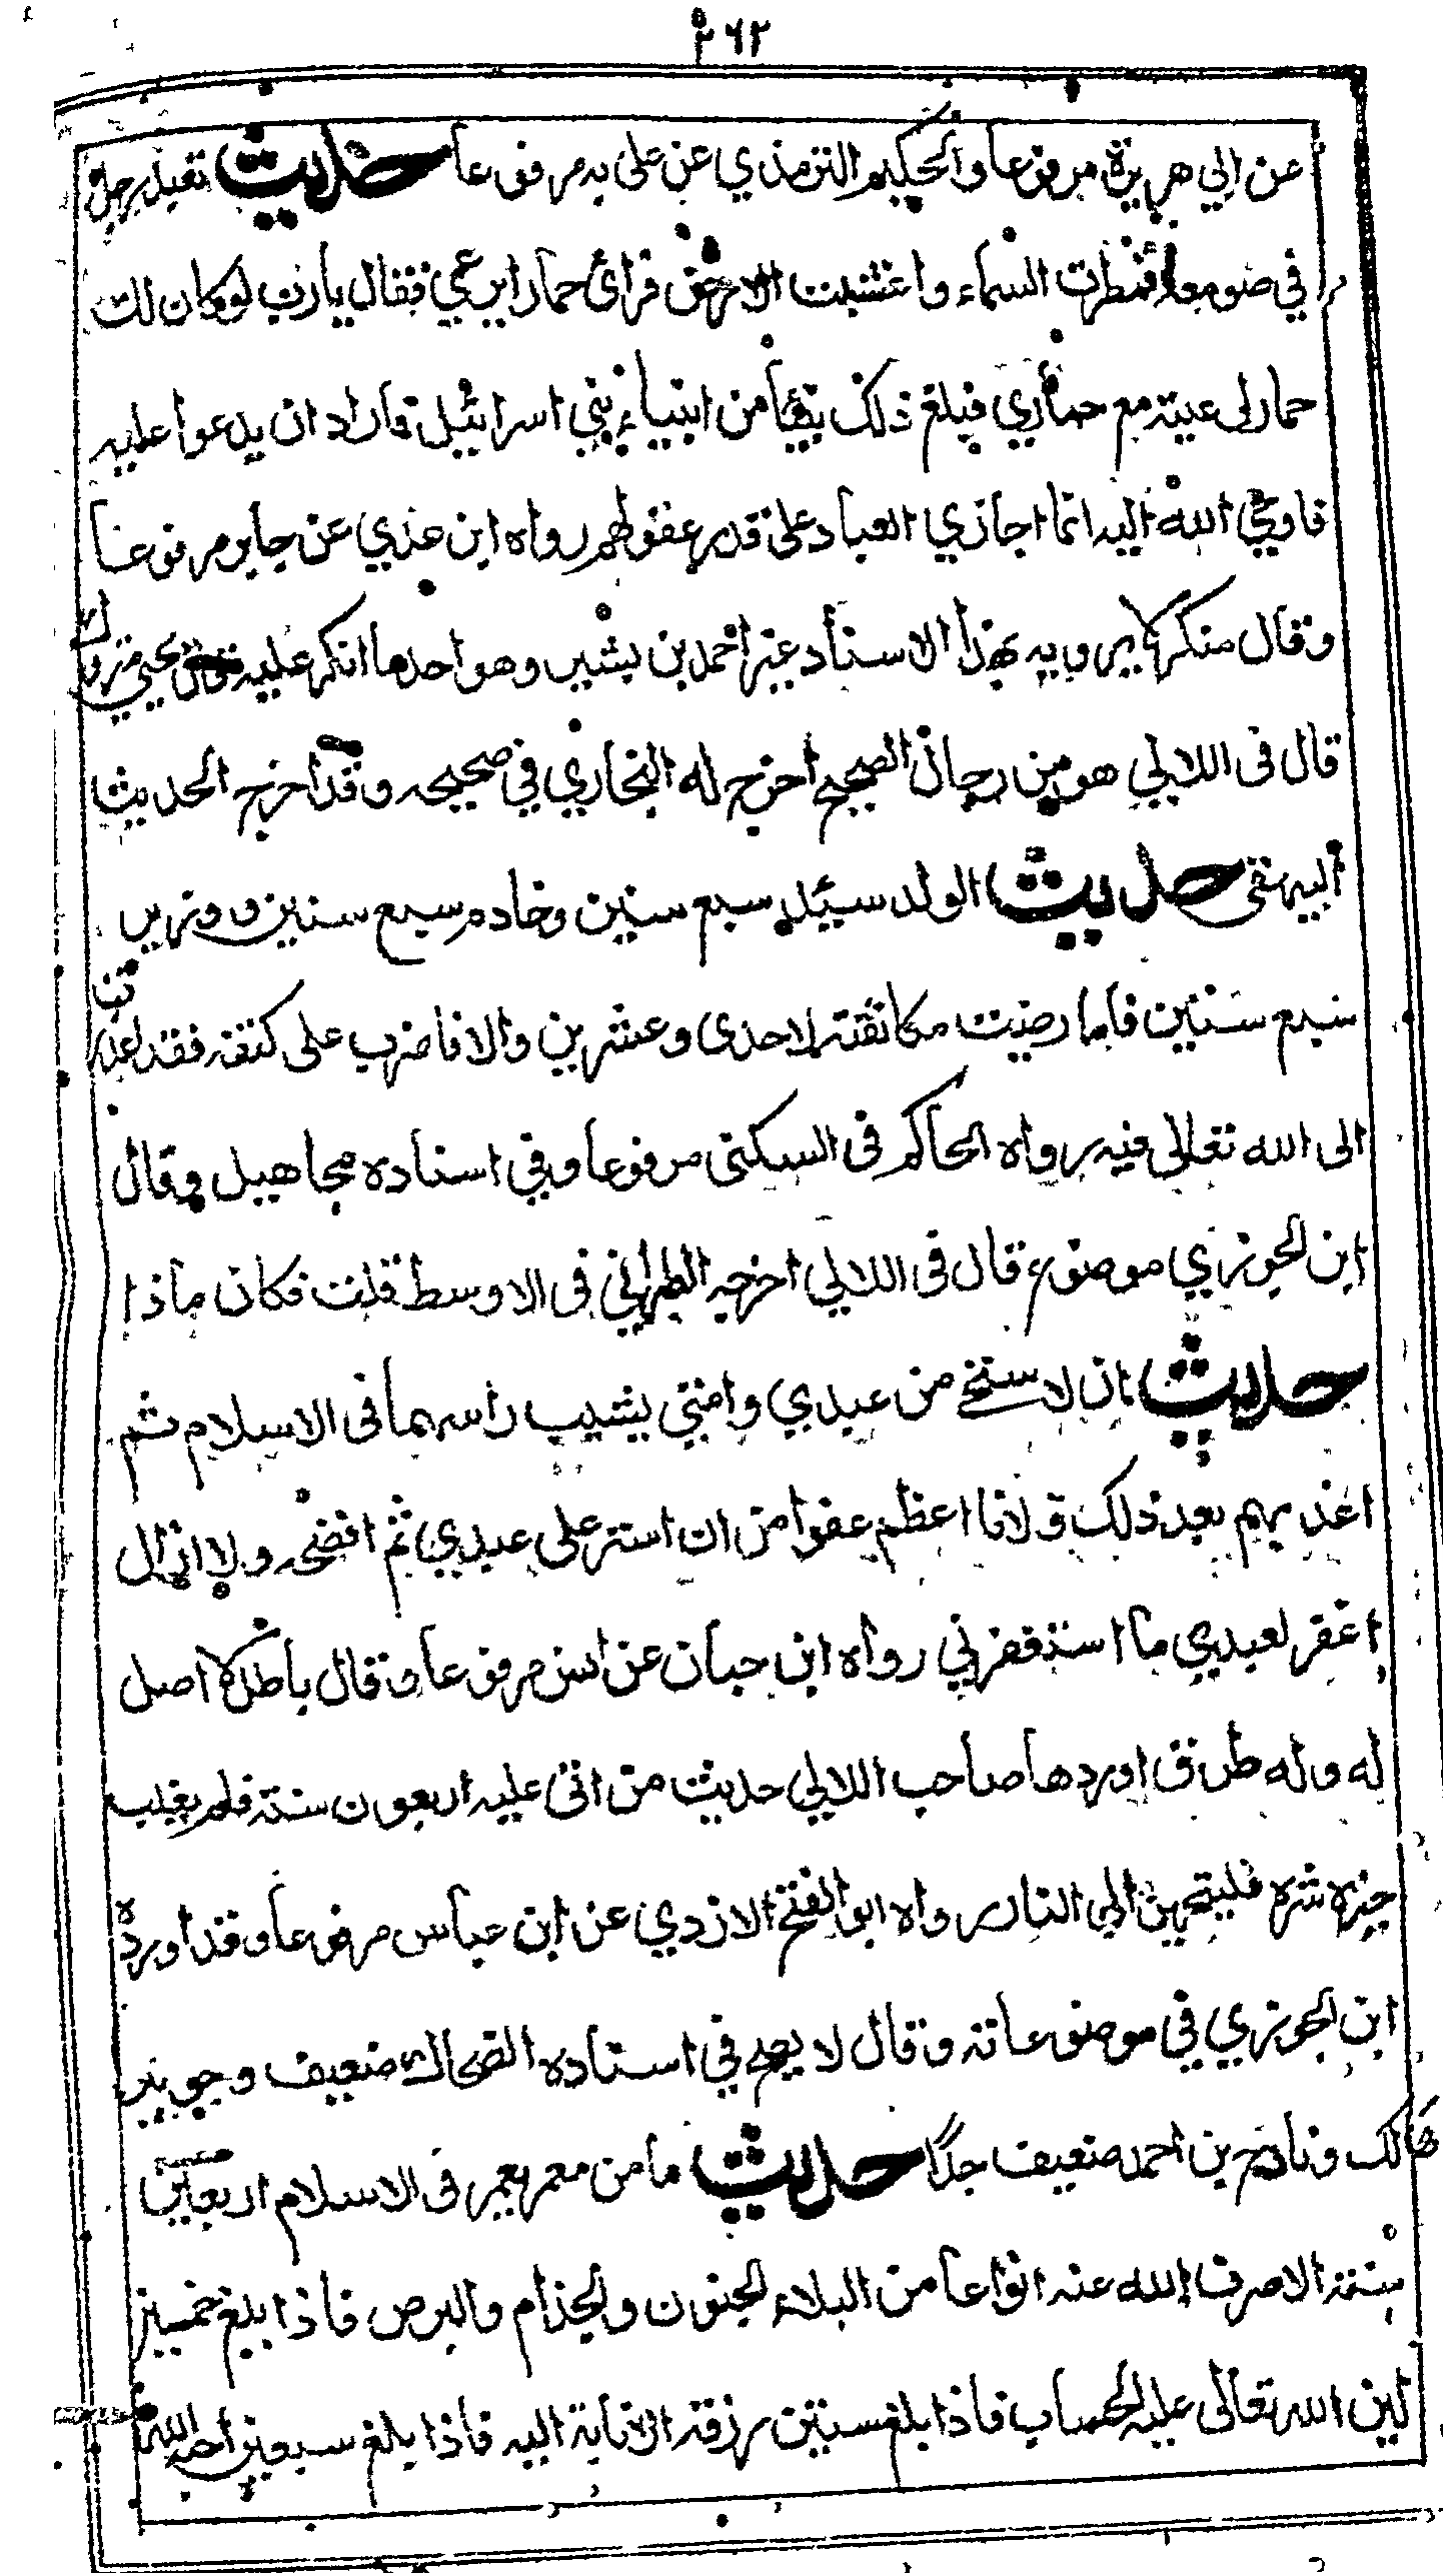 ٢٦٢
عن ابي هريرة مرفوعا والحكيم الترمذي عن علي به مرفوعا حديث تعبد رجل
في صومعة فمطرت السماء واعشبت الارض فراى حمارا يرعى فقال يا رب لو كان لك
حمار لرعيته مع حماري فبلغ ذلك نبيا من انبياء بني اسرائيل فاراد ان يدعوا عليه
فاوحى الله اليه انما اجازي العباد على قدر عقولهم رواه ابن عدي عن جابر مرفوعا
وقال منكر لا يرويه بهذا الاسناد غير احمد بن بشير وهو احد ما انكر عليه
قال فى اللالي هو من رجال الصحيح اخرج له البخاري في صحيحه وقد اخرج الحديث
البيهقى حديث الولد سيد سبع سنين وخادم سبع سنين ووزير
سبع سنين فاما رضيت مكانفته لاحدى وعشرين والا فاضرب على كتفه فقد اعذرت
الى الله تعالى فيه رواه الحاكم فى السكنى مرفوعا وفي اسناده مجاهيل وقال
ابن الجوزي موضوع قال فى اللالي اخرجه الطبراني فى الاوسط قلت فكان ماذا
حديث ان لاستحي من عبدي وامتي يشيب راسهما فى الاسلام ثم
اعذبهم بعد ذلك ولانا اعظم عفوا من ان استر على عبدي ثم افضحه ولا ازال
اغفر لعبدي ما استغفرني رواه ابن حبان عن انس مرفوعا وقال باطل لا اصل
له وله طرق اوردها صاحب اللالي حديث من اتى عليه اربعون سنة فلم يغلب
خيره شره فليتجهز الى النار رواه ابو الفتح الازدي عن ابن عباس مرفوعا وقد اورده
ابن الجوزي في موضوعاته وقال لا يصح في اسناده الضحاك ضعيف وجويبر
هالك وبارح بن احمد ضعيف جدا حديث ما من معمر يعمر فى الاسلام اربعين
سنة الا صرف الله عنه انواعا من البلاء الجنون والجذام والبرص فاذا بلغ خمسين
لين الله تعالى عليه الحساب فاذا بلغ ستين رزقه الانابة اليه فاذا بلغ سبعين احبه الله